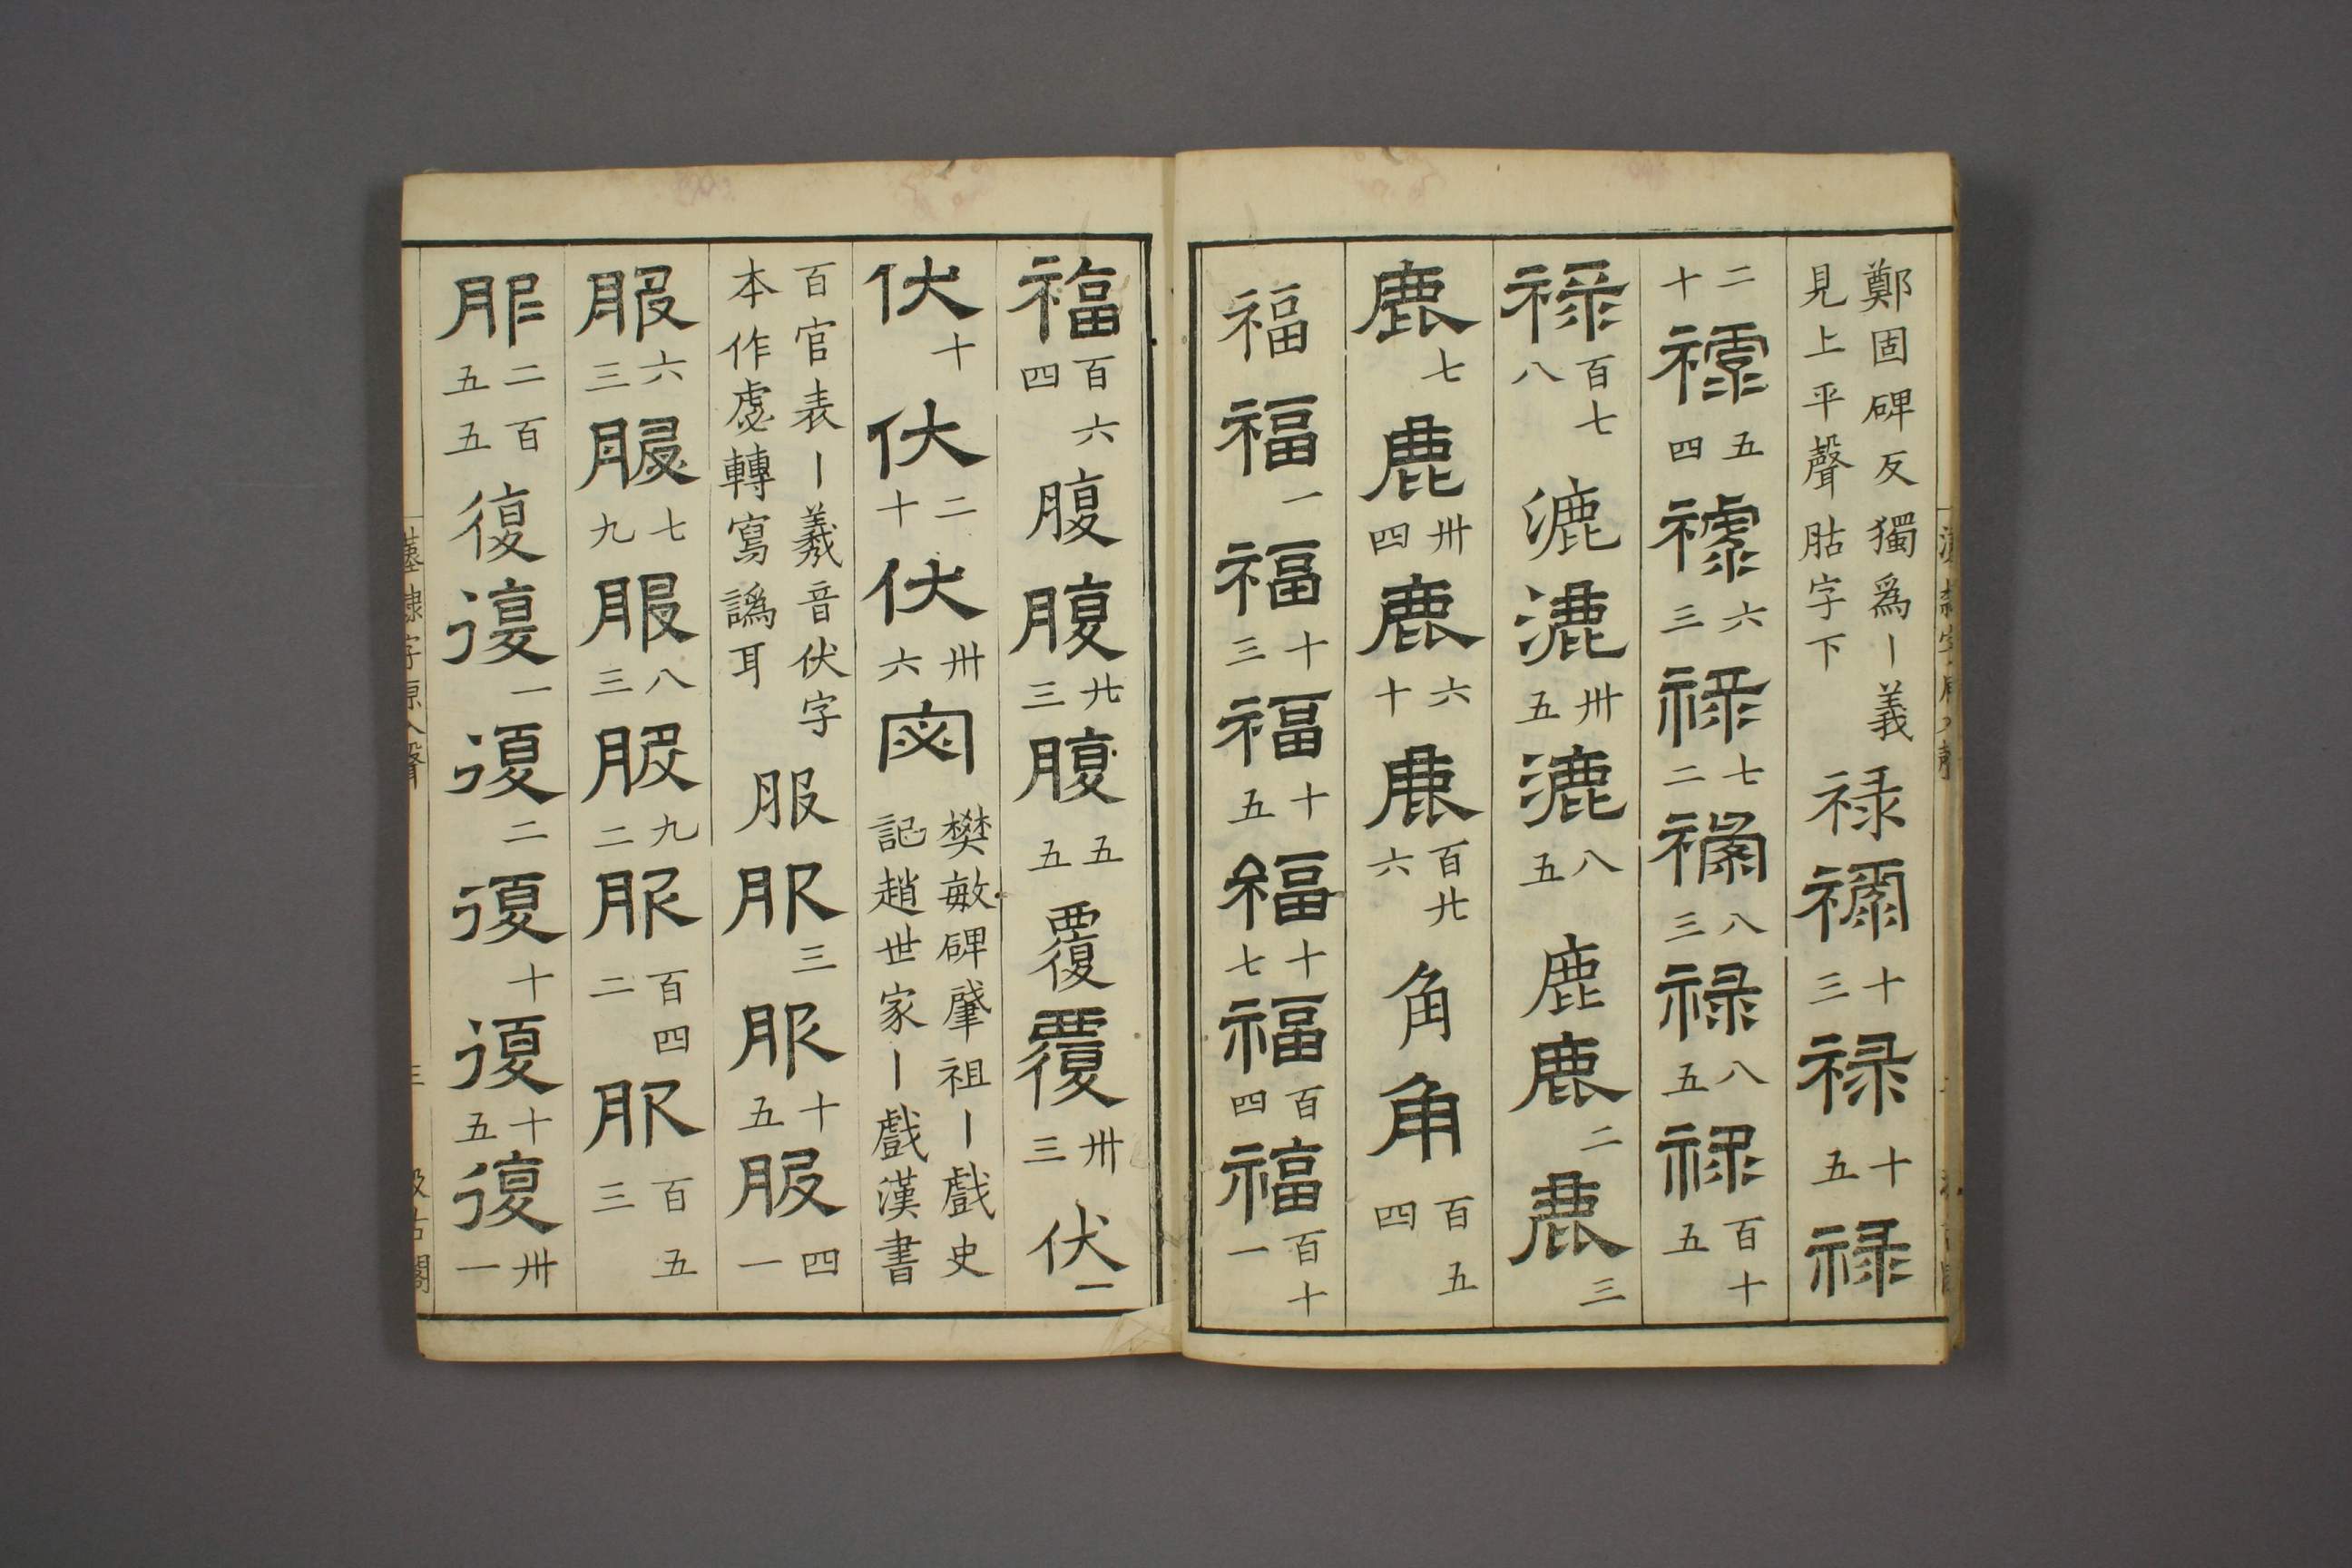 鄭固碑反獨爲丨義
見上平聲䏓字下
祿禰十三祿十五祿
二十祿五四祿六三祿七二祿八三祿八五祿百十五
祿百七八漉漉卅五漉八五鹿鹿二鹿三
鹿七鹿卅四鹿六十鹿百廿六角角百五四
福福一福十三福十五福十七福百四福百十一
福百六四腹腹廿三腹五五覆覆卅三伏一
伏十伏二十伏卅六宓
樊敏碑肇祖丨戲史
記趙世家丨戲漢書
百官表丨羲音伏字
本作虙轉寫譌耳
服服三服十五服四一
服六三服七九服八三服九二服百四二服百五三
服二五百五復復一復二復十復十五復卅一
漢隸字原入聲 三 汲古閣